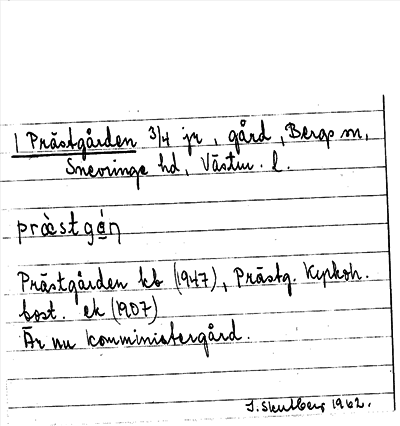 1 Prästgården 3/4 jr, gård, Bergs sn,
Snevringe hd, Västm. l.
præ̀stgå̀ṇ
Prästgården kb (1947), Prästg. Kyrkoh.
bost. ek (1907)
Är nu komministergård.
1962.